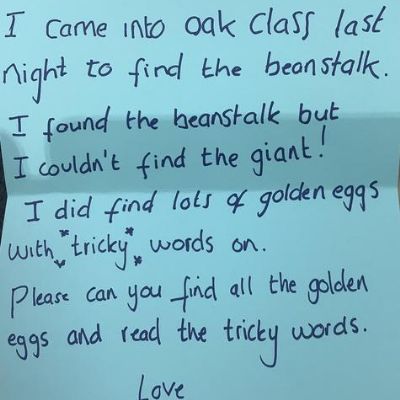 I came into oak class last
night to find the beanstalk.
I found the beanstalk but
I couldn't find the giant!
I did find lots of golden eggs
with *tricky* words on.
Please can you find all the golden
eggs and read the tricky words.
Love